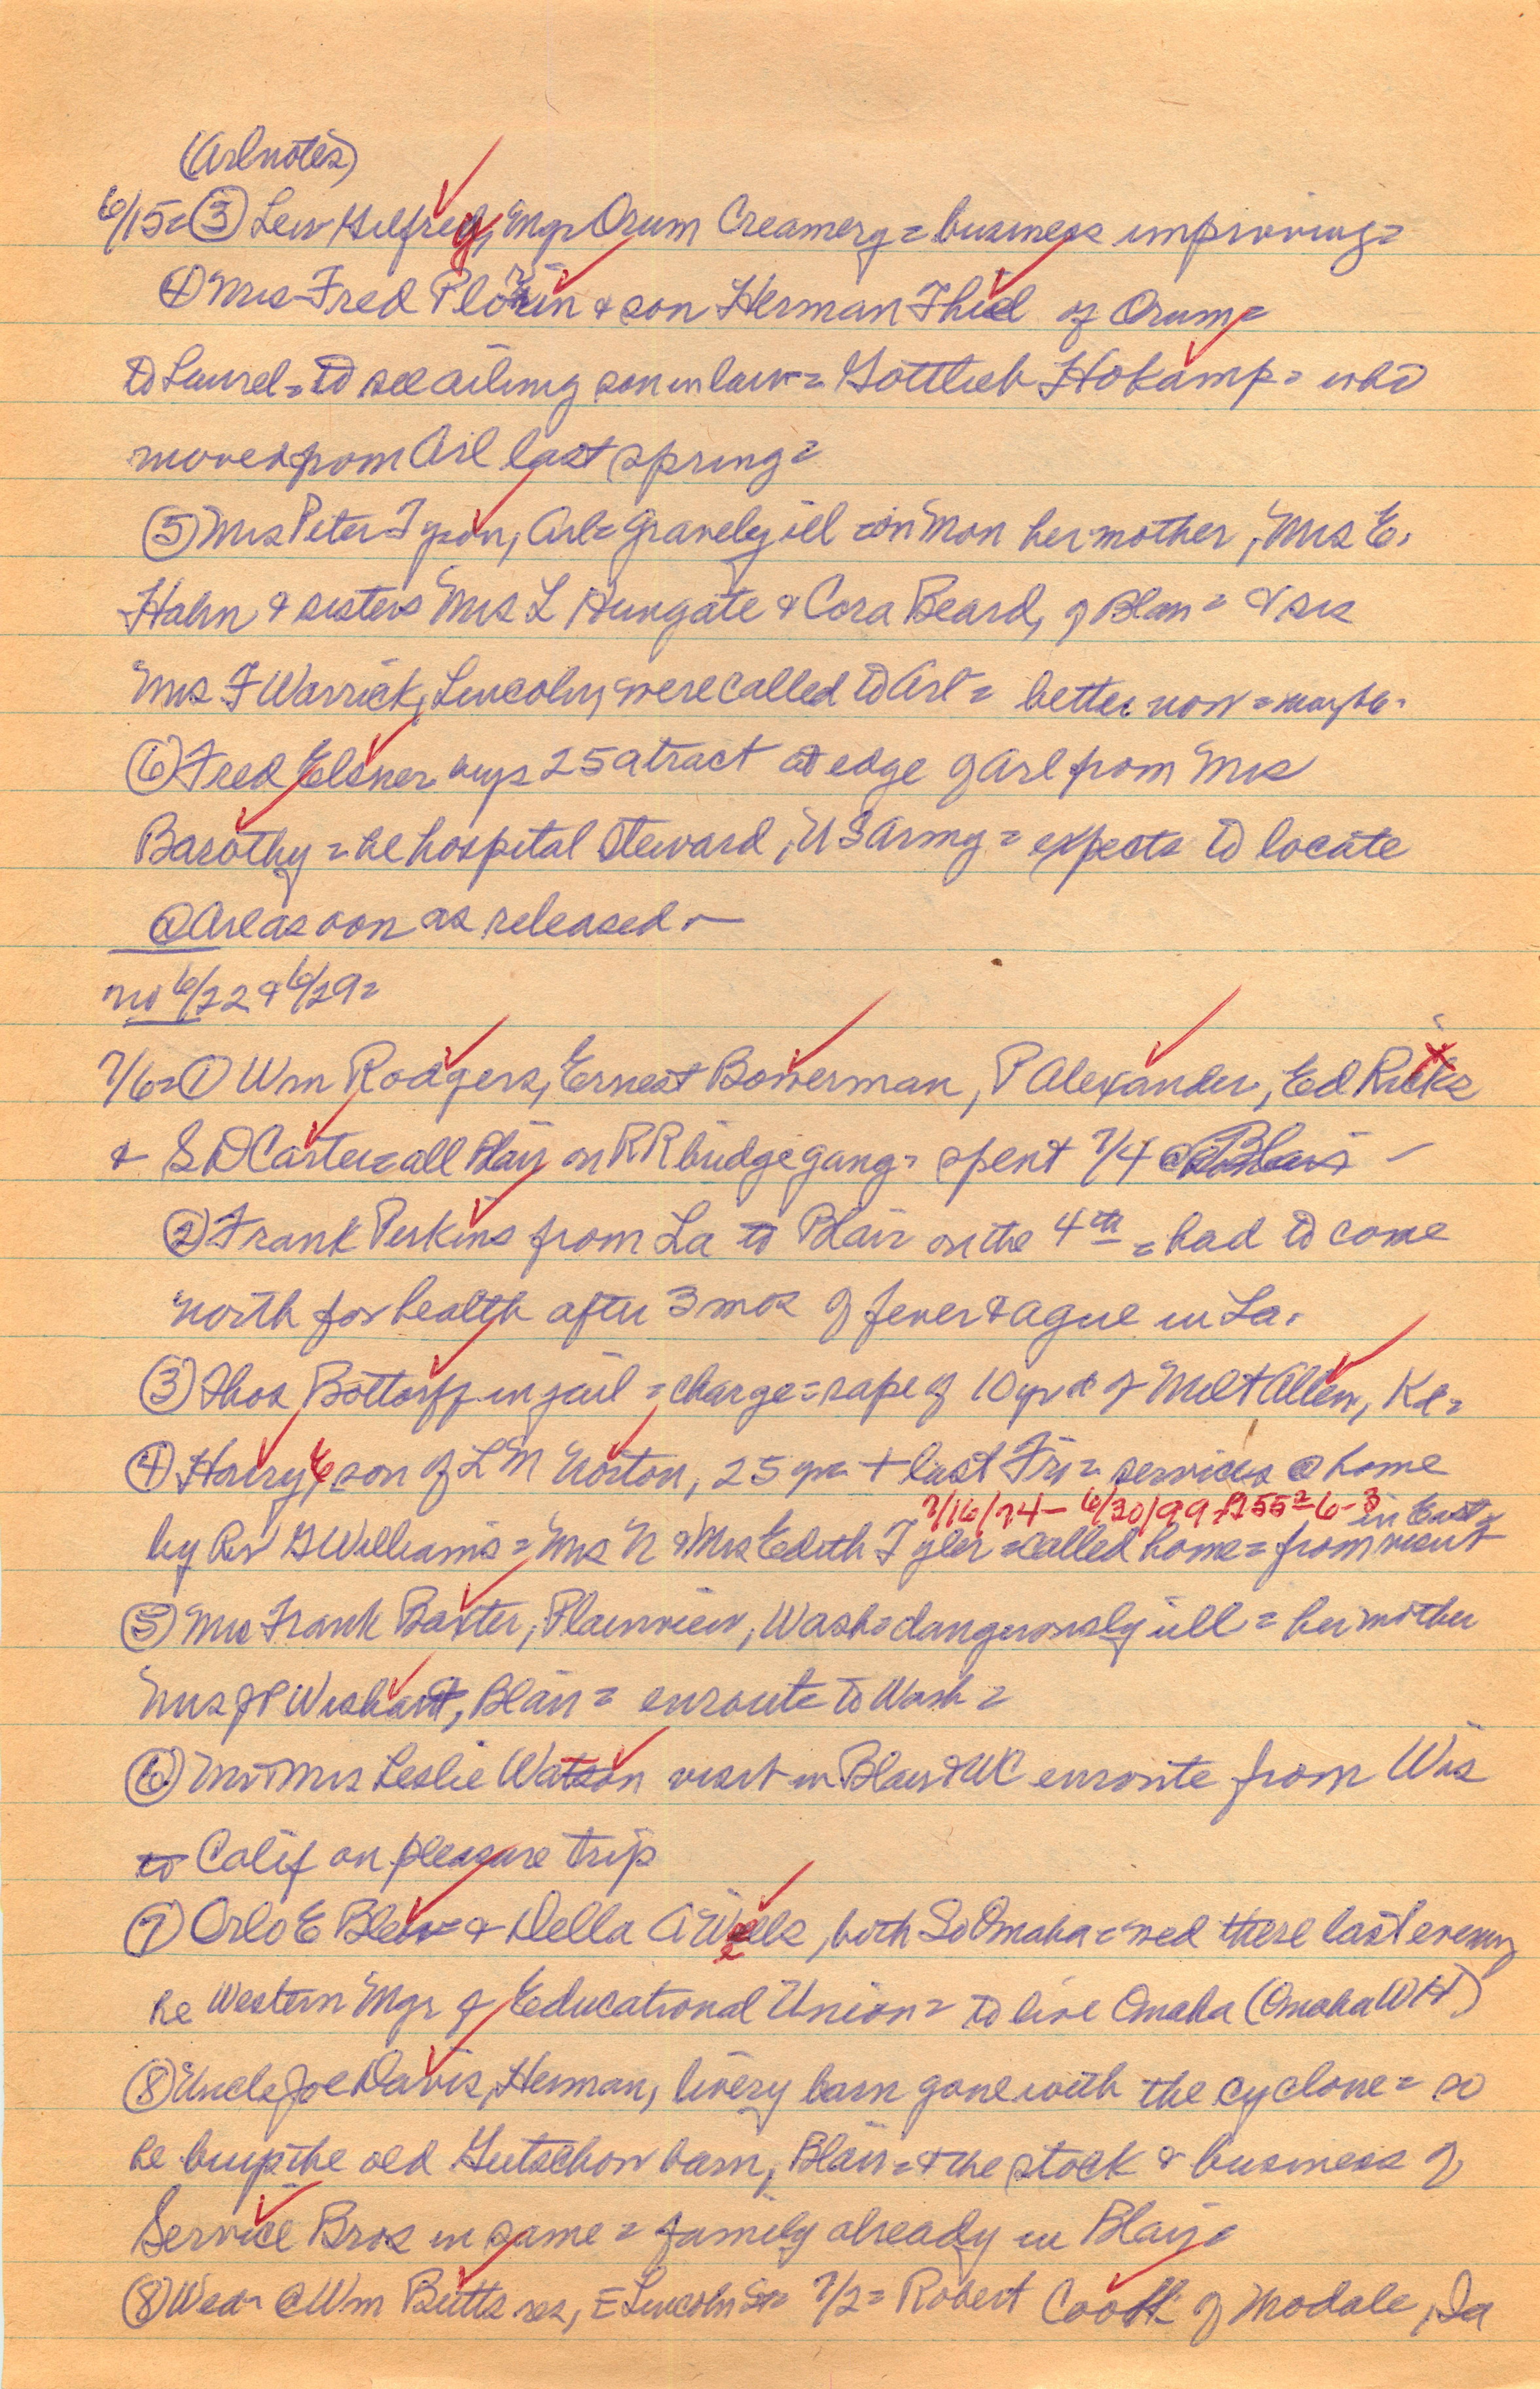 (Arlnotes)
6/15= ③ Lew Hilfrey, Mgr Orum Creamery = business improving =
④ Mrs Fred Plorin & son Herman Thiel of Orum =
to Laurel = to see ailing son in law = Gottlieb Hokamp = who
moved from Arl last spring =
⑤ Mrs Peter Tyson, Arl = gravely ill = on Mon her mother, Mrs E.
Hahn & sisters Mrs L Hungate & Cora Beard, of Blair = & sis
Mrs F Warrick, Lincoln, were called to Arl = better now = maybe.
⑥ Fred Elsner buys 25a tract at edge of Arl from Mrs
Barothy = he hospital steward, U S Army = expects to locate
@ Arl as soon as released.—
no 6/22 & 6/29=
7/6= ① Wm Rodgers, Ernest Bowerman, P Alexander, Ed Ricks
& S D Carter = all Blair on RR bridge gang = spent 7/4 @ Blair —
② Frank Perkins from La to Blair on the 4th = had to come
north for health after 3 mos of fever & ague in La.
③ Thos Bottorff in jail = charge = rape of 10 yr d of Melt Allen, Kd=
④ Harry E son of L M Norton, 25 yrs + last Fri = services @ home
7/16/74— 6/30/99 #255=6-3 in East =
by Rev G Williams = Mrs N & Mrs Edith Tyler = called home = from visit
⑤ Mrs Frank Baxter, Plainview, Wash = dangerously ill = her mother
Mrs J P Wishart, Blair = enroute to Wash =
⑥ Mr & Mrs Leslie Watson visit in Blair & WC enroute from Wis
to Calif on pleasure trip
⑦ Orlo E Blew = & Della A Wells, both So Omaha = wed there last evening
he Western Mgr of Educational Union = to live Omaha (Omaha WH)
⑧ Uncle Joe Davis, Herman, livery barn gone with the cyclone = so
he buys the old Gutschow barn, Blair = & the stock & business of
Service Bros in same = family already in Blair =
⑧ Wed @ Wm Butts res, E Lincoln St = 7/2 = Robert Cook of Modale, Ia